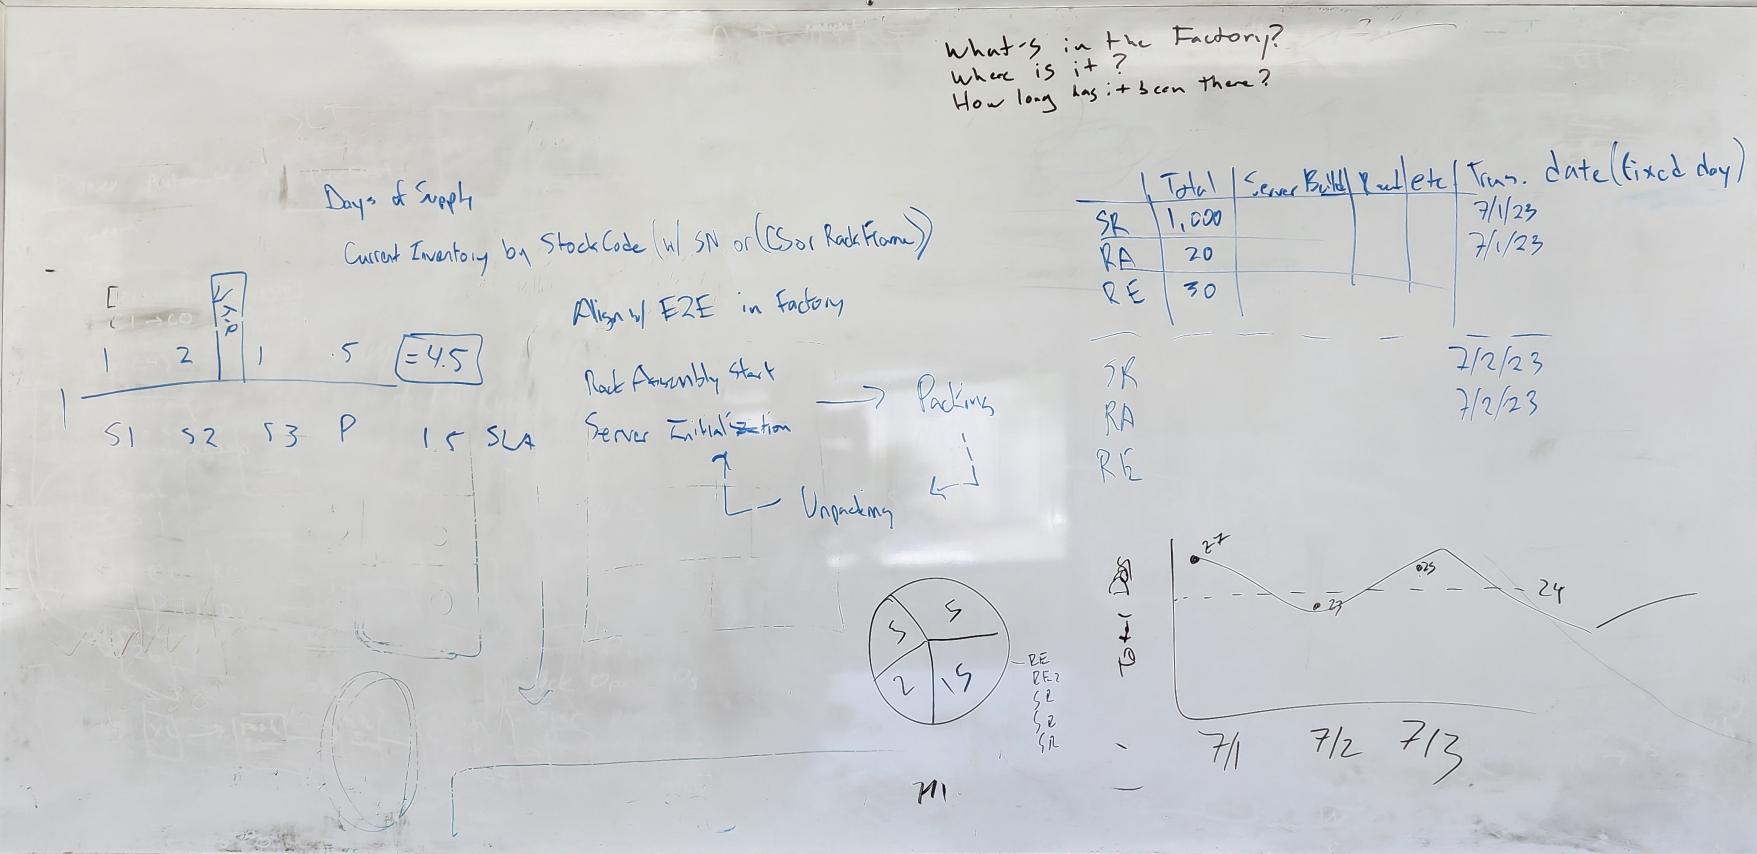 What's in the Factory?
Where is it?
How long has it been there?
Days of Supply
Current Inventory by StockCode (w/ SN or (CS or Rack Frame))
Align w/ E2E in Factory
WIP
1 2 1 .5 =4.5
S1 S2 S3 P 1.5 SLA
Rack Assembly Start
Server Initialization
Packing
Unpacking
Total Server Build etc Tran. date (fixed day)
SR 1,000 7/1/23
RA 20 7/1/23
RE 30
SR 7/2/23
RA 7/2/23
RE
5 5
2 15
RE
RE2
SR
SR
SR
7/1
Total
27
23
25
24
7/1 7/2 7/3